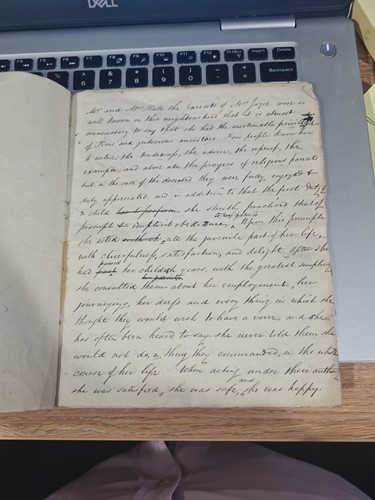 DELL
Delete
Backspace
Mr and Mrs Hale the parents of Mrs Joyce were so
well known in this neighbourhood that it is almost
unnecessary to say that she had the inestimable privilege
of pious and judicious ancestors. Few people know how
to value the kindness, the advice, the reproof, the
example, and above all the prayers of religious parents
but in the case of the deceased they were fully enjoyed &
duly appreciated, and in addition to that the first duty of
a child she strictly practised that of
prompt & implicit obedience, to her parents. Upon this principle
she acted all the juvenile part of her life,
with cheerfulness, satisfaction, and delight. After she
had passed her childish years, with the greatest simplicity
she consulted them about her employment, her
journeyings, her dress and every thing in which she
thought they would wish to have a voice and she
has often been heard to say she never told them she
would not do, a thing they commanded, in the whole
course of her life. When acting under their
she was satisfied, she was safe, and she was happy.